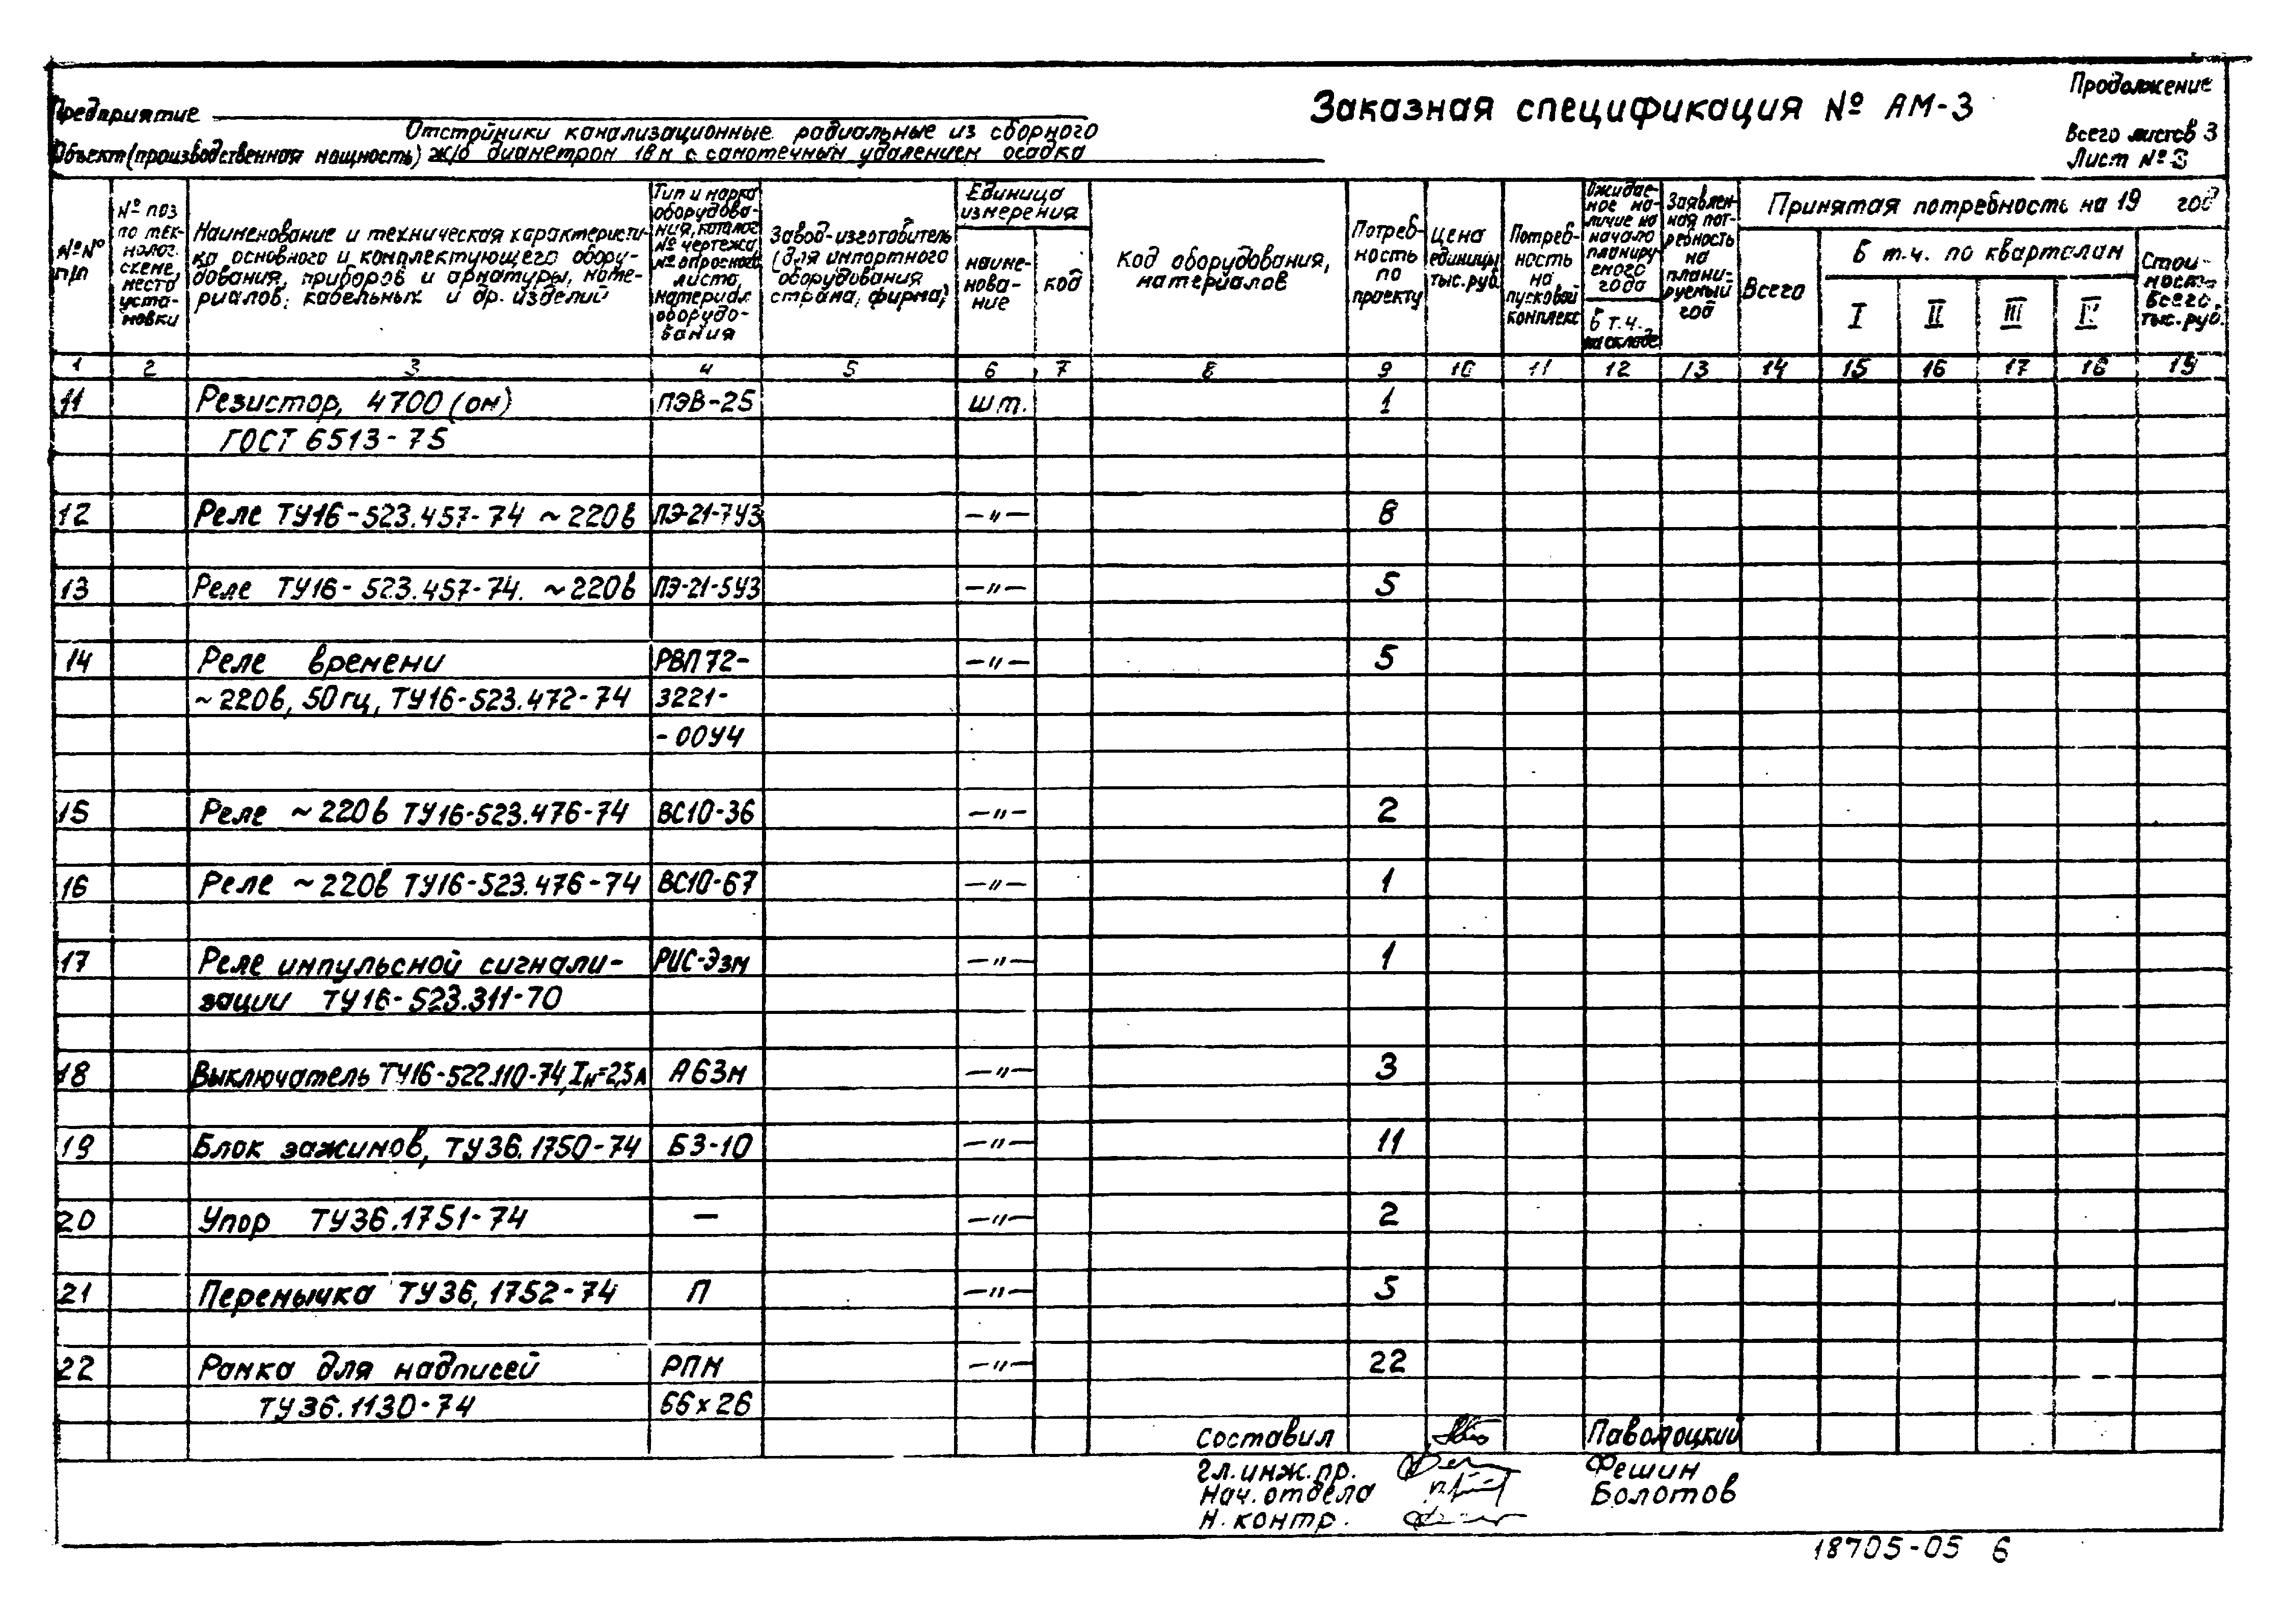 Продолжение
Предприятие
Заказная спецификация № АМ-3
Отстойники канализационные радиальные из сборного
Всего листов 3
Объект (производственная мощность) ж/б диаметром 18м с самотечным удалением осадка
Лист № 3
№№ п/п
№ поз. по технолог. схеме, место установки
Наименование и техническая характеристи-
ка основного и комплектующего обору-
дования, приборов и арматуры, мате-
риалов, кабельных и др. изделий
Тип и марка
оборудова-
ния, каталог
№ чертежа,
№ опросного
листа,
материал
оборудо-
вания
Завод-изготовитель
(для импортного
оборудования
страна, фирма)
Единица
измерения
наиме-
нова-
ние
код
Код оборудования,
материалов
Потреб-
ность
по
проекту
Цена
единицы
тыс. руб.
Потреб-
ность
на
пусковой
комплекс
Ожидае-
мое на-
личие на
начало
планиру
емого
года
В т.ч.
на складе
Заявлен-
ная пот-
ребность
на
плани-
руемый
год
Принятая потребность на 19 год
Всего
В т.ч. по кварталам
I II III IV
Стои-
мость
всего,
тыс. руб.
1 2 3 4 5 6 7 8 9 10 11 12 13 14 15 16 17 18 19
11 Резистор, 4700 (ом) ПЭВ-25 шт. 1
ГОСТ 6513-75
12 Реле ТУ16-523.457-74 ~220в ПЭ-21-7У3 —"— 8
13 Реле ТУ16-523.457-74. ~220в ПЭ-21-5У3 —"— 5
14 Реле времени РВП72- —"— 5
~220в, 50гц, ТУ16-523.472-74 3221-
-00У4
15 Реле ~220в ТУ16-523.476-74 ВС10-36 —"— 2
16 Реле ~220в ТУ16-523.476-74 ВС10-67 —"— 1
17 Реле импульсной сигнали- РИС-Э3м —"— 1
зации ТУ16-523.311-70
18 Выключатель ТУ16-522.110-74, Iн=2,5А А63м —"— 3
19 Блок зажимов, ТУ36.1750-74 БЗ-10 —"— 11
20 Упор ТУ36.1751-74 — —"— 2
21 Перемычка ТУ36,1752-74 П —"— 5
22 Рамка для надписей РПМ —"— 22
ТУ36.1130-74 66х26
Составил Паволоцкий
Гл. инж. пр. Фешин
Нач. отдела Болотов
Н. контр.
18705-05 6